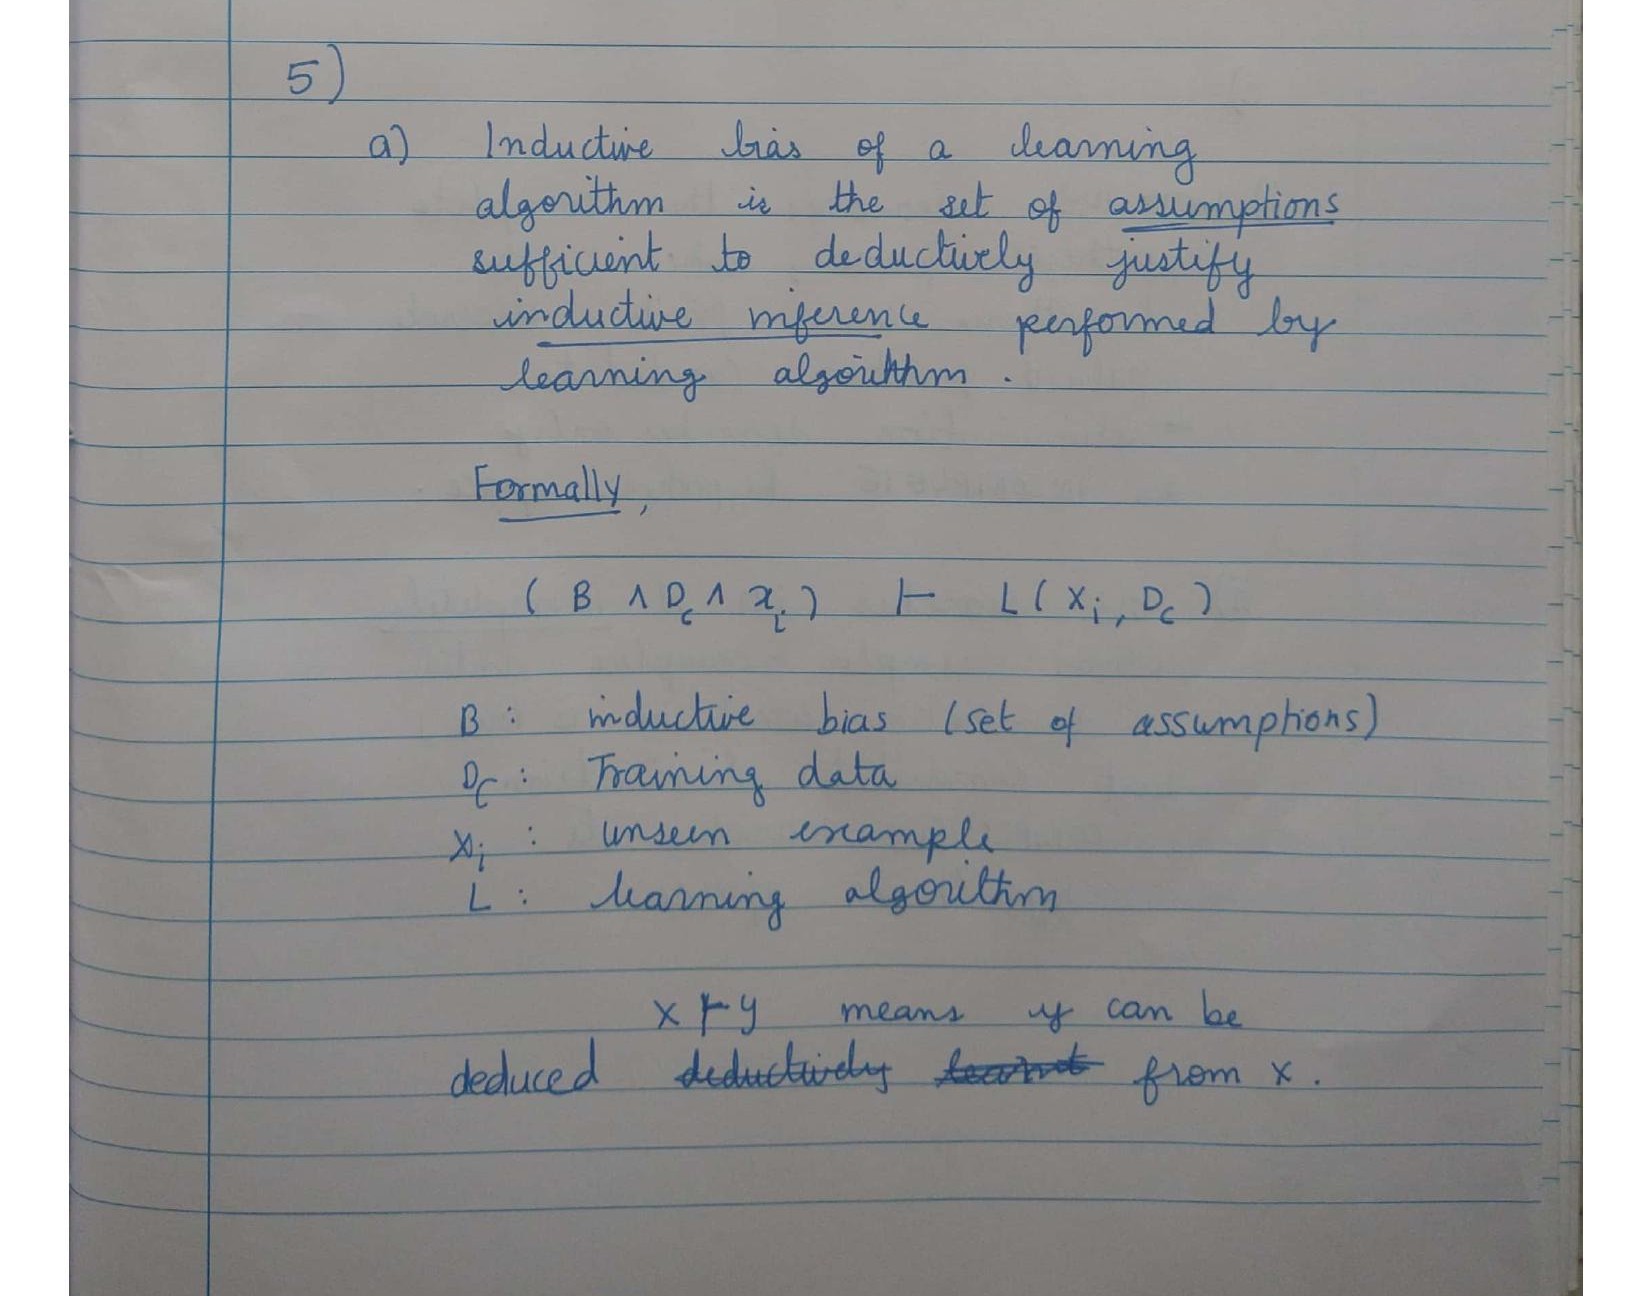 5)
a) Inductive bias of a learning
algorithm is the set of assumptions
sufficient to deductively justify
inductive inference performed by
learning algorithm .
Formally,
( B ∧ Dc ∧ xi ) ⊢ L ( xi , Dc )
B : inductive bias (set of assumptions)
Dc : Training data
xi : unseen example
L : learning algorithm
x ⊢ y means y can be
deduced deductively learnt from x .